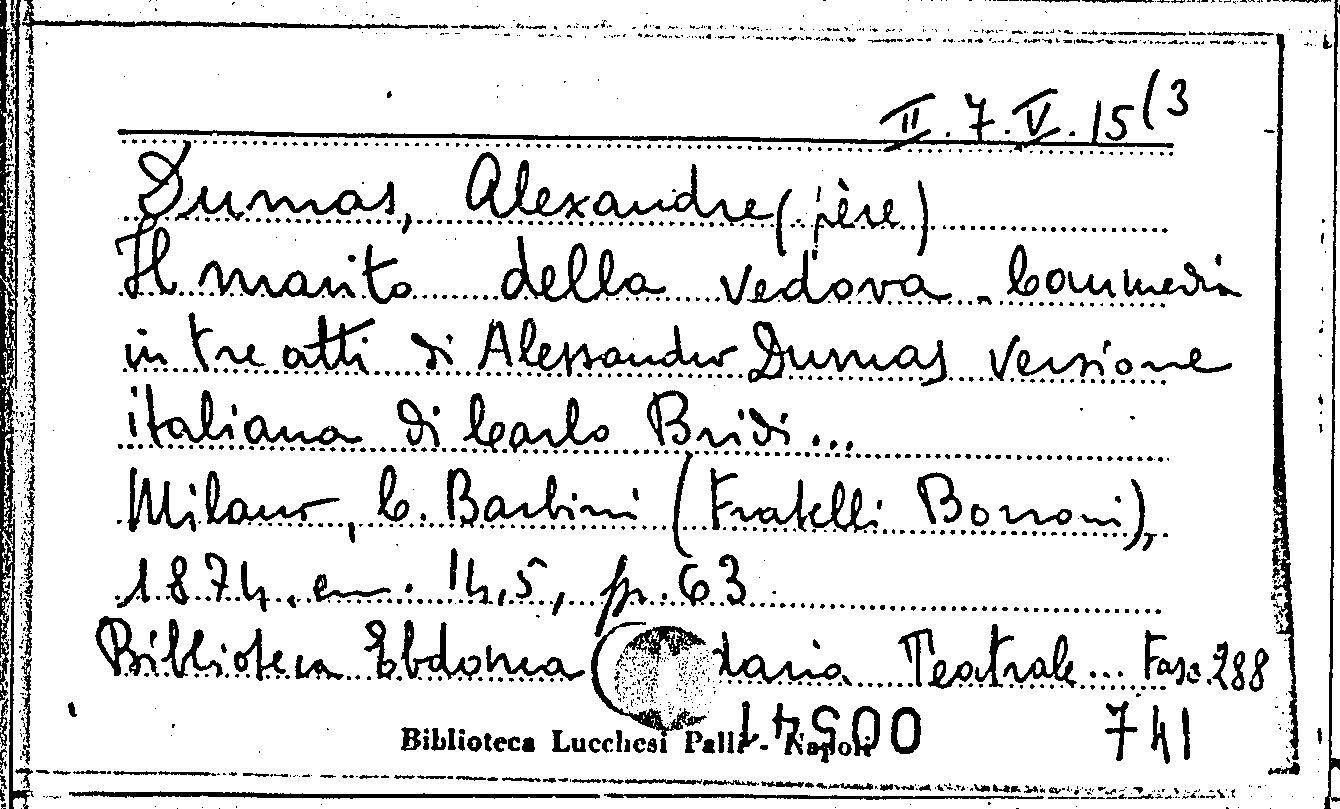 II.7.V.15(3
Dumas, Alexandre (père)
Il marito della vedova - Commedia
in tre atti di Alessandro Dumas versione
italiana di Carlo Bridi...
Milano, C. Barbini (Fratelli Borroni),
1874, cm. 14,5, pp. 63
Biblioteca Ebdomadaria Teatrale... Fasc. 288
Biblioteca Lucchesi Palli - Napoli
741